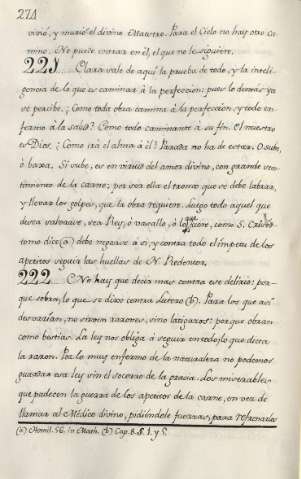 274
vivió, y murió el divino Maestro. Para el Cielo no hay otro ca-
mino. No puede entrar en él, el que no le siguiere.
221 Clara sale de aquí la prueba de todo, y la inteli-
gencia de lo que es caminar á la perfeccion: pues lo demás ya
se percibe. ¿Como toda obra camina á la perfeccion, y todo en-
fermo á la salud? Como todo caminante á su fin. El nuestro
es Dios. ¿Como irá el alma á él? Parada no ha de estar. O sube,
ó baxa. Si sube, es en virtud del amor divino, con grande sen-
timiento de la carne; por ser ella el tronco que se debe labrar,
y llevar los golpes, que la obra requiere. Luego todo aquel que
desea salvarse, sea Rey, ó vasallo, ó lo que fuere, como S. Crisos-
tomo dice (a) debe negarse á sí, y contra todo el ímpetu de los
apetitos seguir las huellas de N. Redentor.
222 No hay que decir mas contra ese delirio: por-
que sobra, lo que se dixo contra Lutero (b). Para los que así
desvarían, no sirven razones, sino latigazos: por que obran
como bestias. La ley nos obliga á seguir en todo lo que dicta
la razon. Por lo muy enfermo de la naturaleza no podemos
guardar esa ley sin el socorro de la gracia. Los miserables
que padecen la guerra de los apetitos de la carne, en vez de
llamar al Médico divino, pidiéndole fuerzas, para refrenarlos
(a) Homil. 56. in Math. (b) Cap. 8. §. 1. y 5.